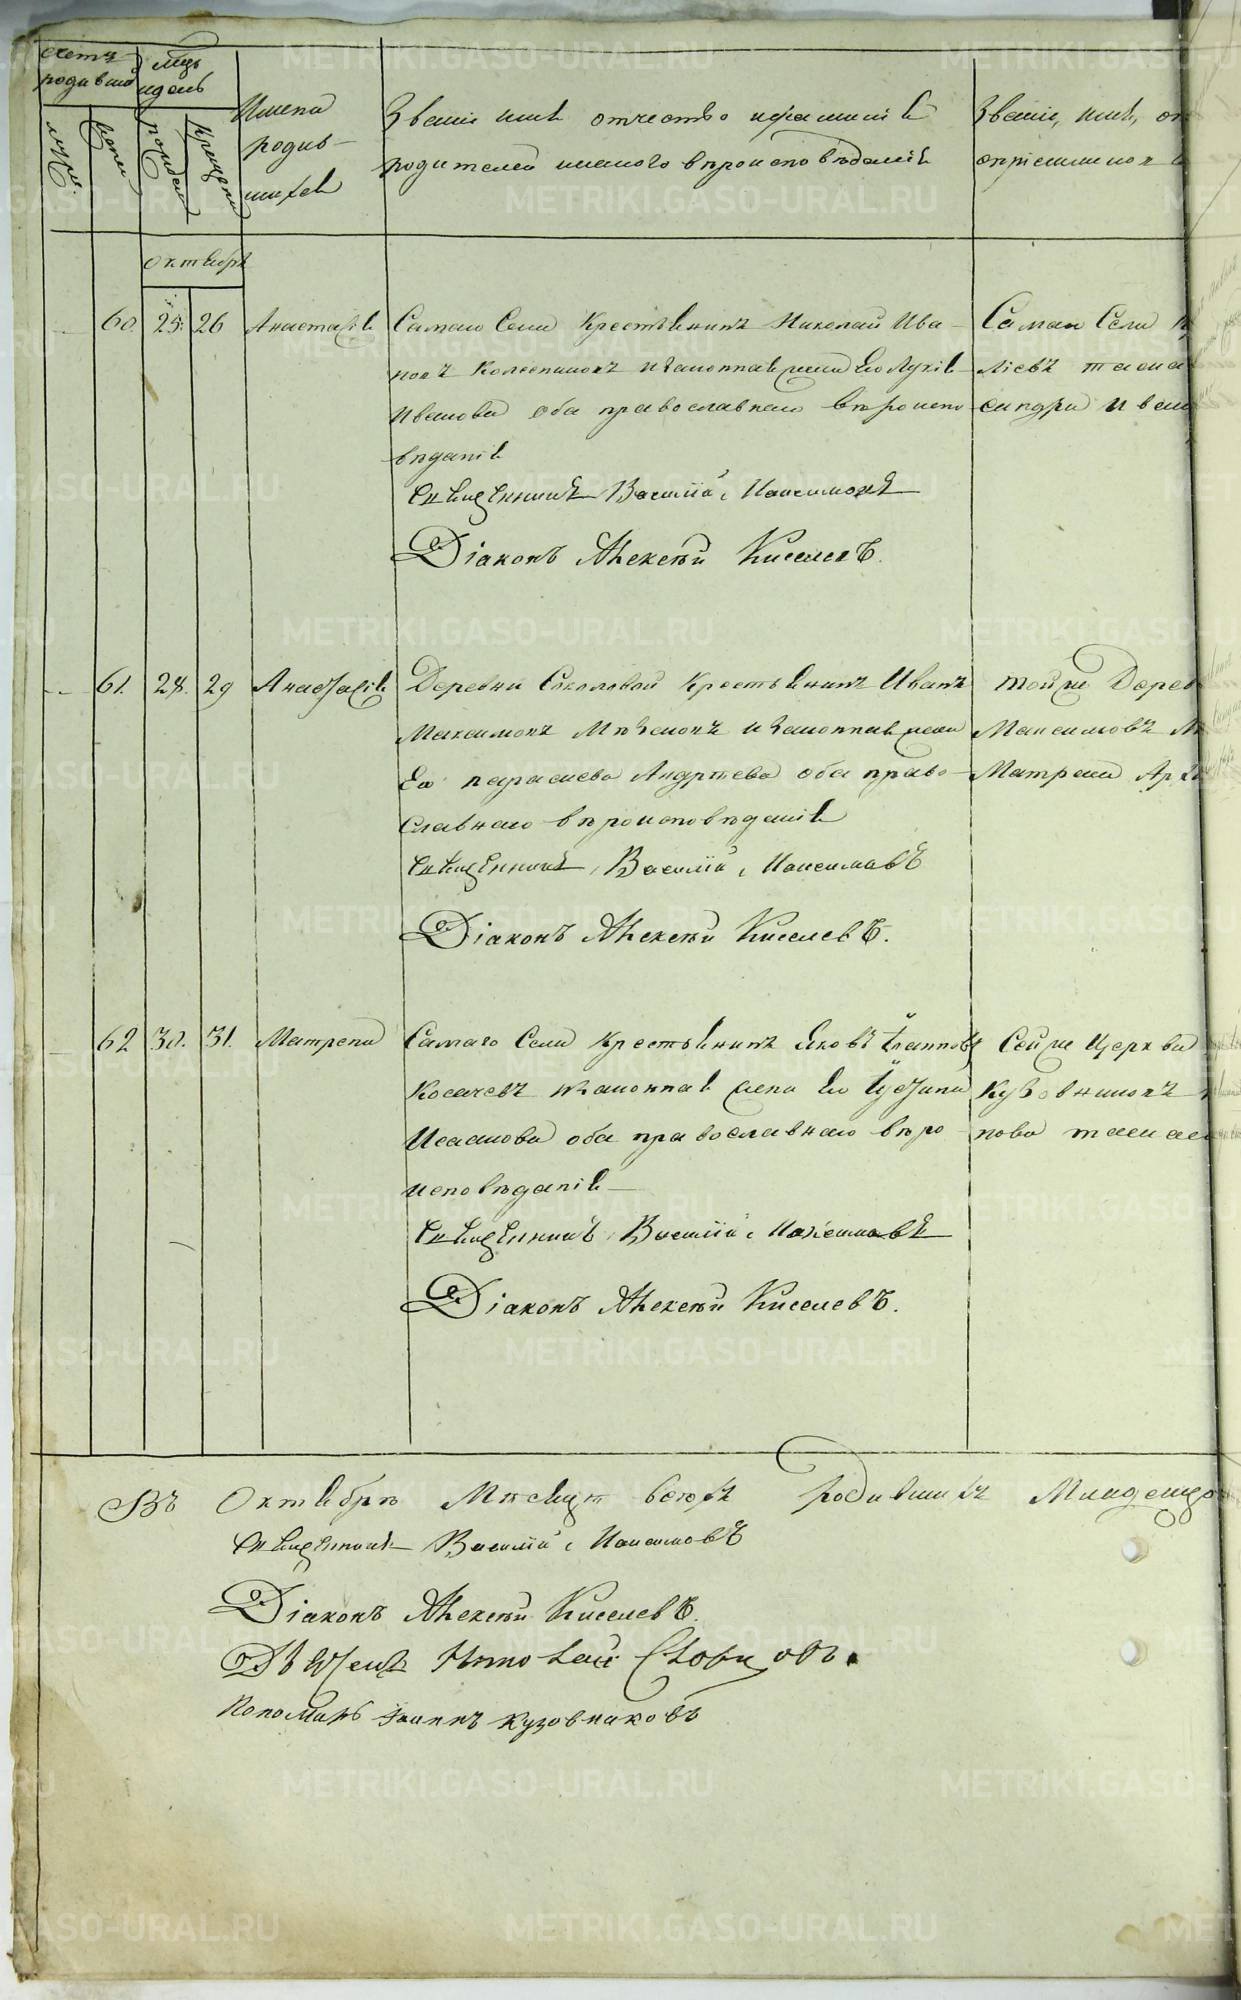 счетъ родившихся
мцъ и день
муж.
женск
рожден
крщени
Имена родив-шихся
Званіе имя отчество и фамилія
родителей и какого вѣроисповѣданія
Званіе, имя,
воспріемников
октябрь
60. 25. 26 Анастасія
Самаго Села Крестьянинъ Николай Ива-
новъ Колесниковъ и законная жена его Лукія
Иванова оба православнаго вѣроиспо
вѣданія
Священникъ Василій Максимовъ
Діаконъ Алексѣй Киселевъ.
Самаго Села
61. 28. 29 Анастасія
Деревни Соколовой Крестьянинъ Иванъ
Максимовъ и законная жена
Его Параскева Андреева оба право-
славнаго вѣроисповѣданія
Священникъ Василій Максимовъ
Діаконъ Алексѣй Киселевъ.
тойже Дерев
Максимовъ
Матрена
62 30. 31. Матрена
Самаго Села Крестьянинъ Яковъ
Косачевъ и законная жена его Устина
Исакова оба православнаго вѣро-
исповѣданія
Священникъ Василій Максимовъ
Діаконъ Алексѣй Киселевъ.
Сейже Церкви
Кузовниковъ
нова таже
Въ Октябрѣ Мѣсяцѣ всѣхъ родившихъ Младенцо
Священникъ Василій Максимовъ
Діаконъ Алексѣй Киселевъ.
Дьячекъ Николай Словцовъ.
Пономарь Іоаннъ Кузовниковъ
METRIKI.GASO-URAL.RU